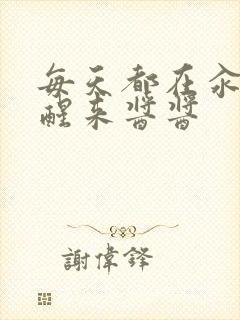 每天都在
醒来醬醬
謝偉鋒